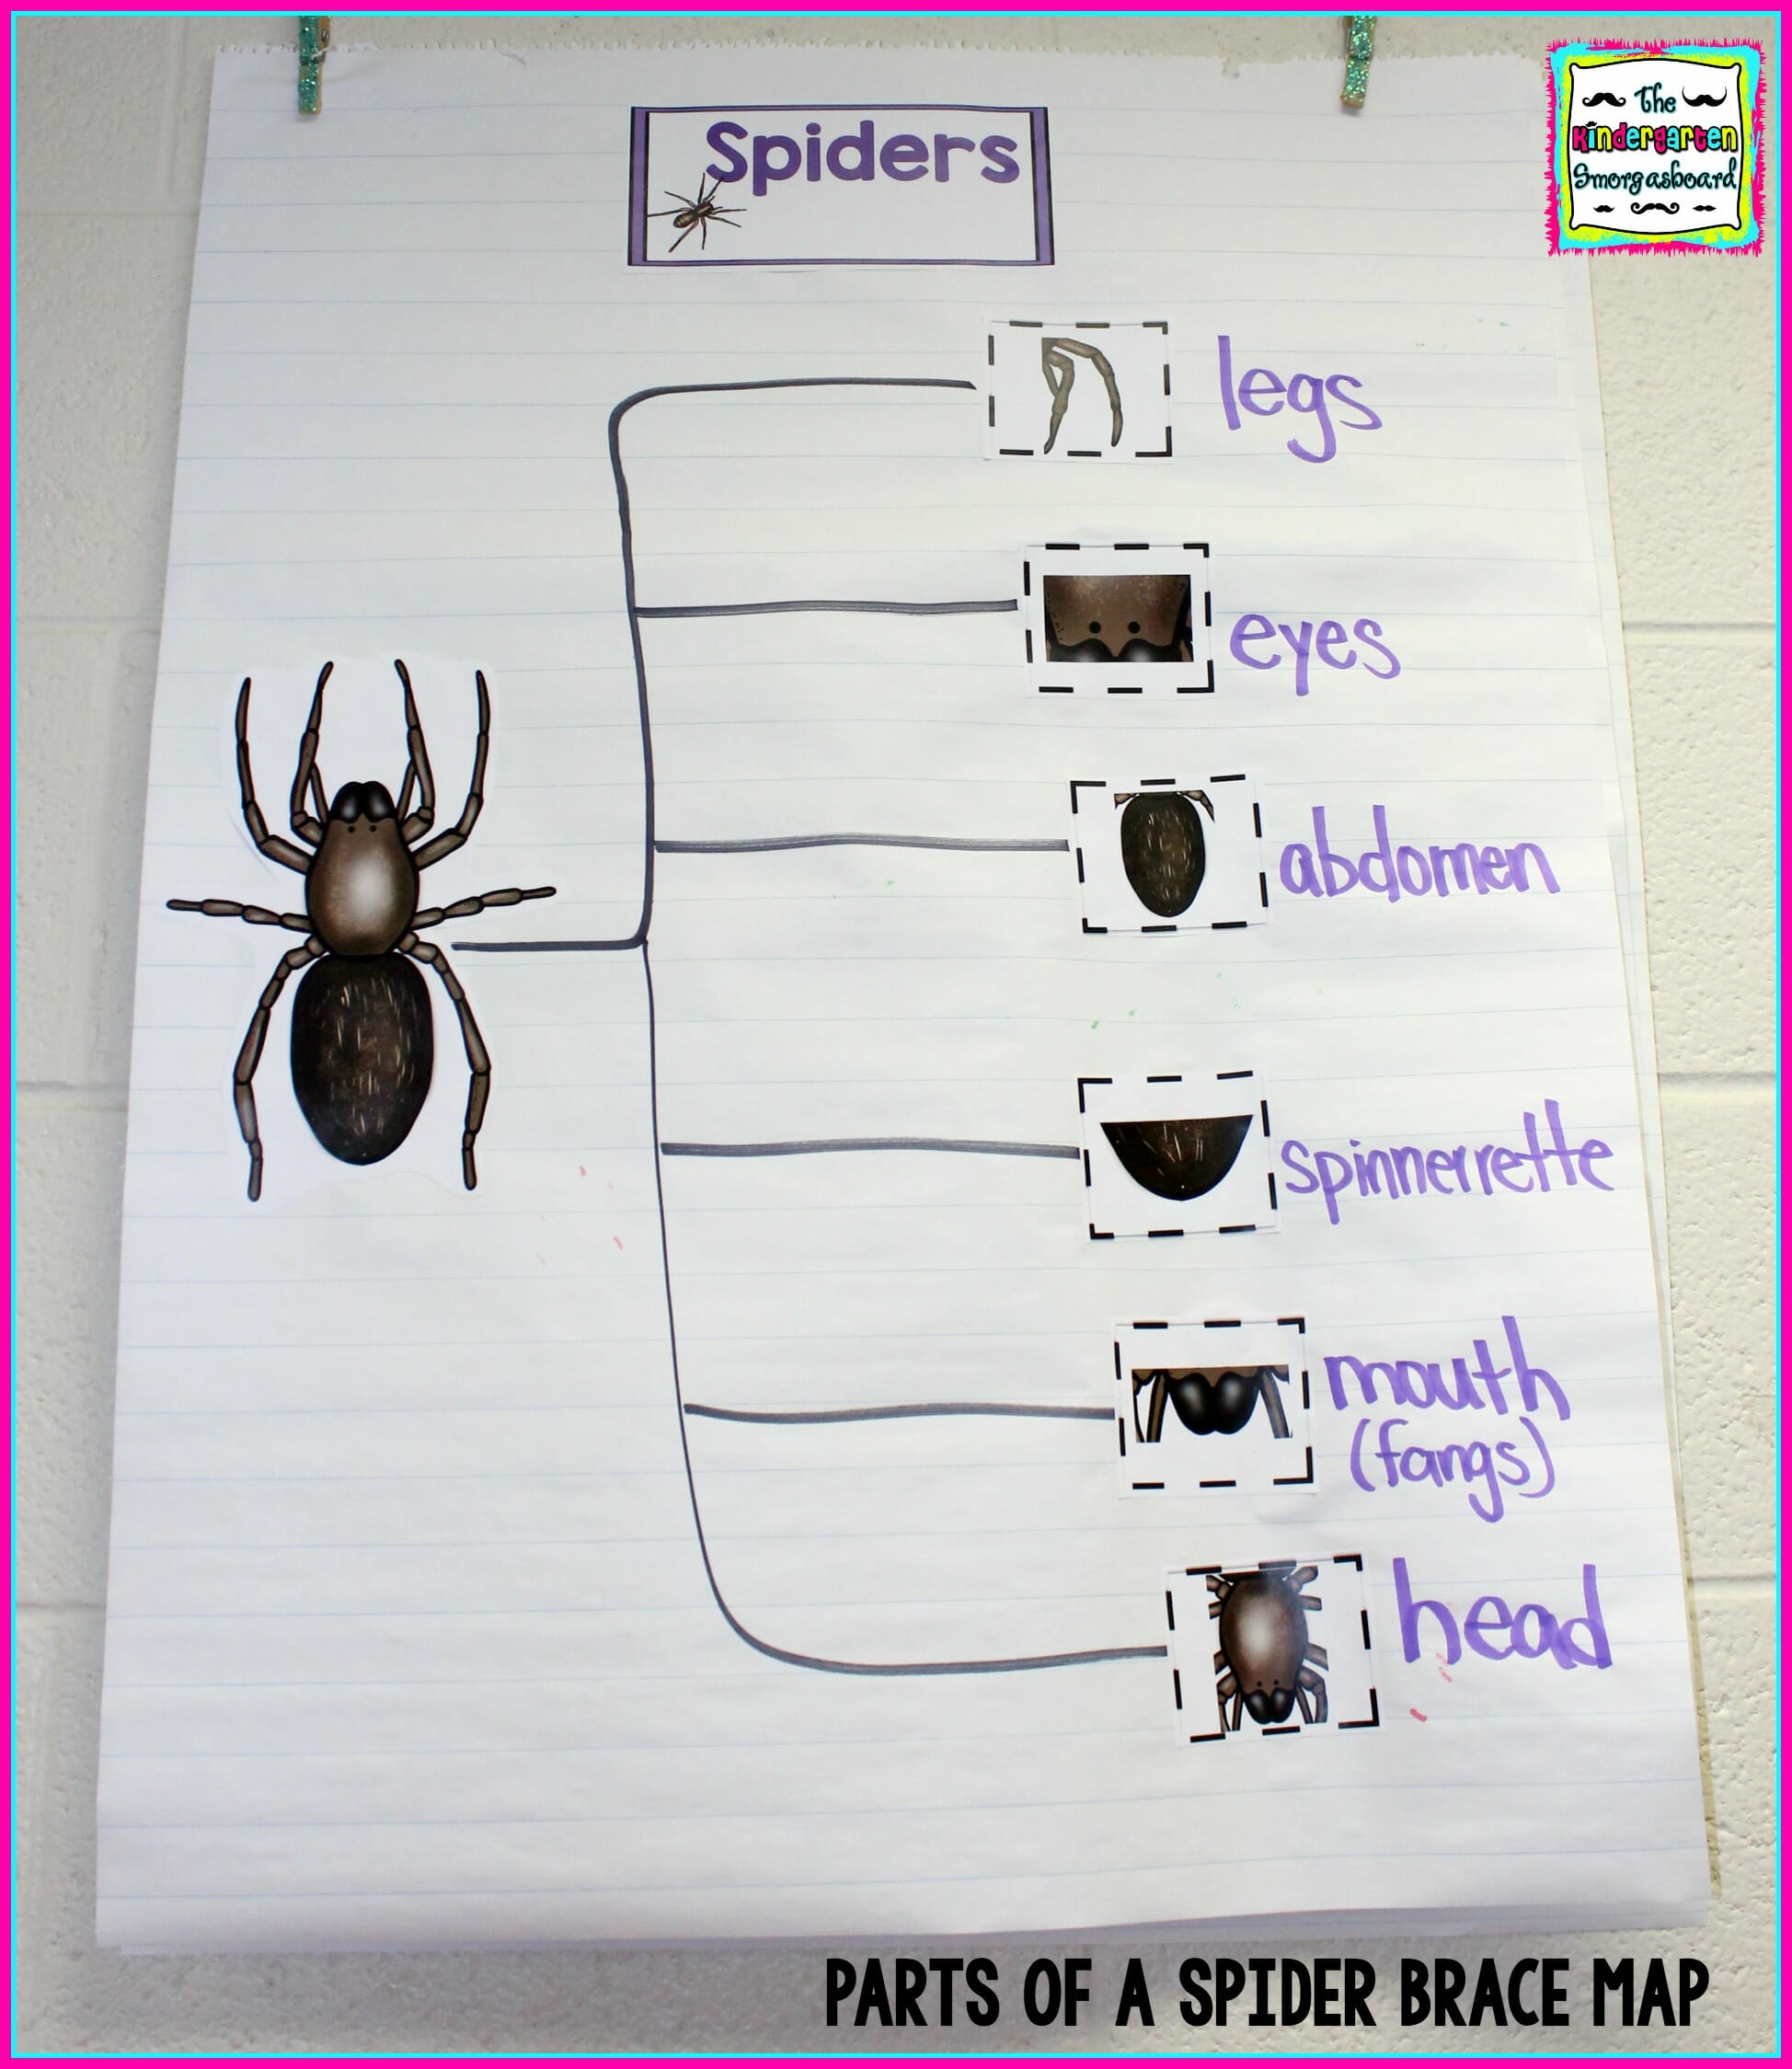 The
Kindergarten
Smorgasboard
Spiders
legs
eyes
abdomen
spinnerrette
mouth
(fangs)
head
PARTS OF A SPIDER BRACE MAP